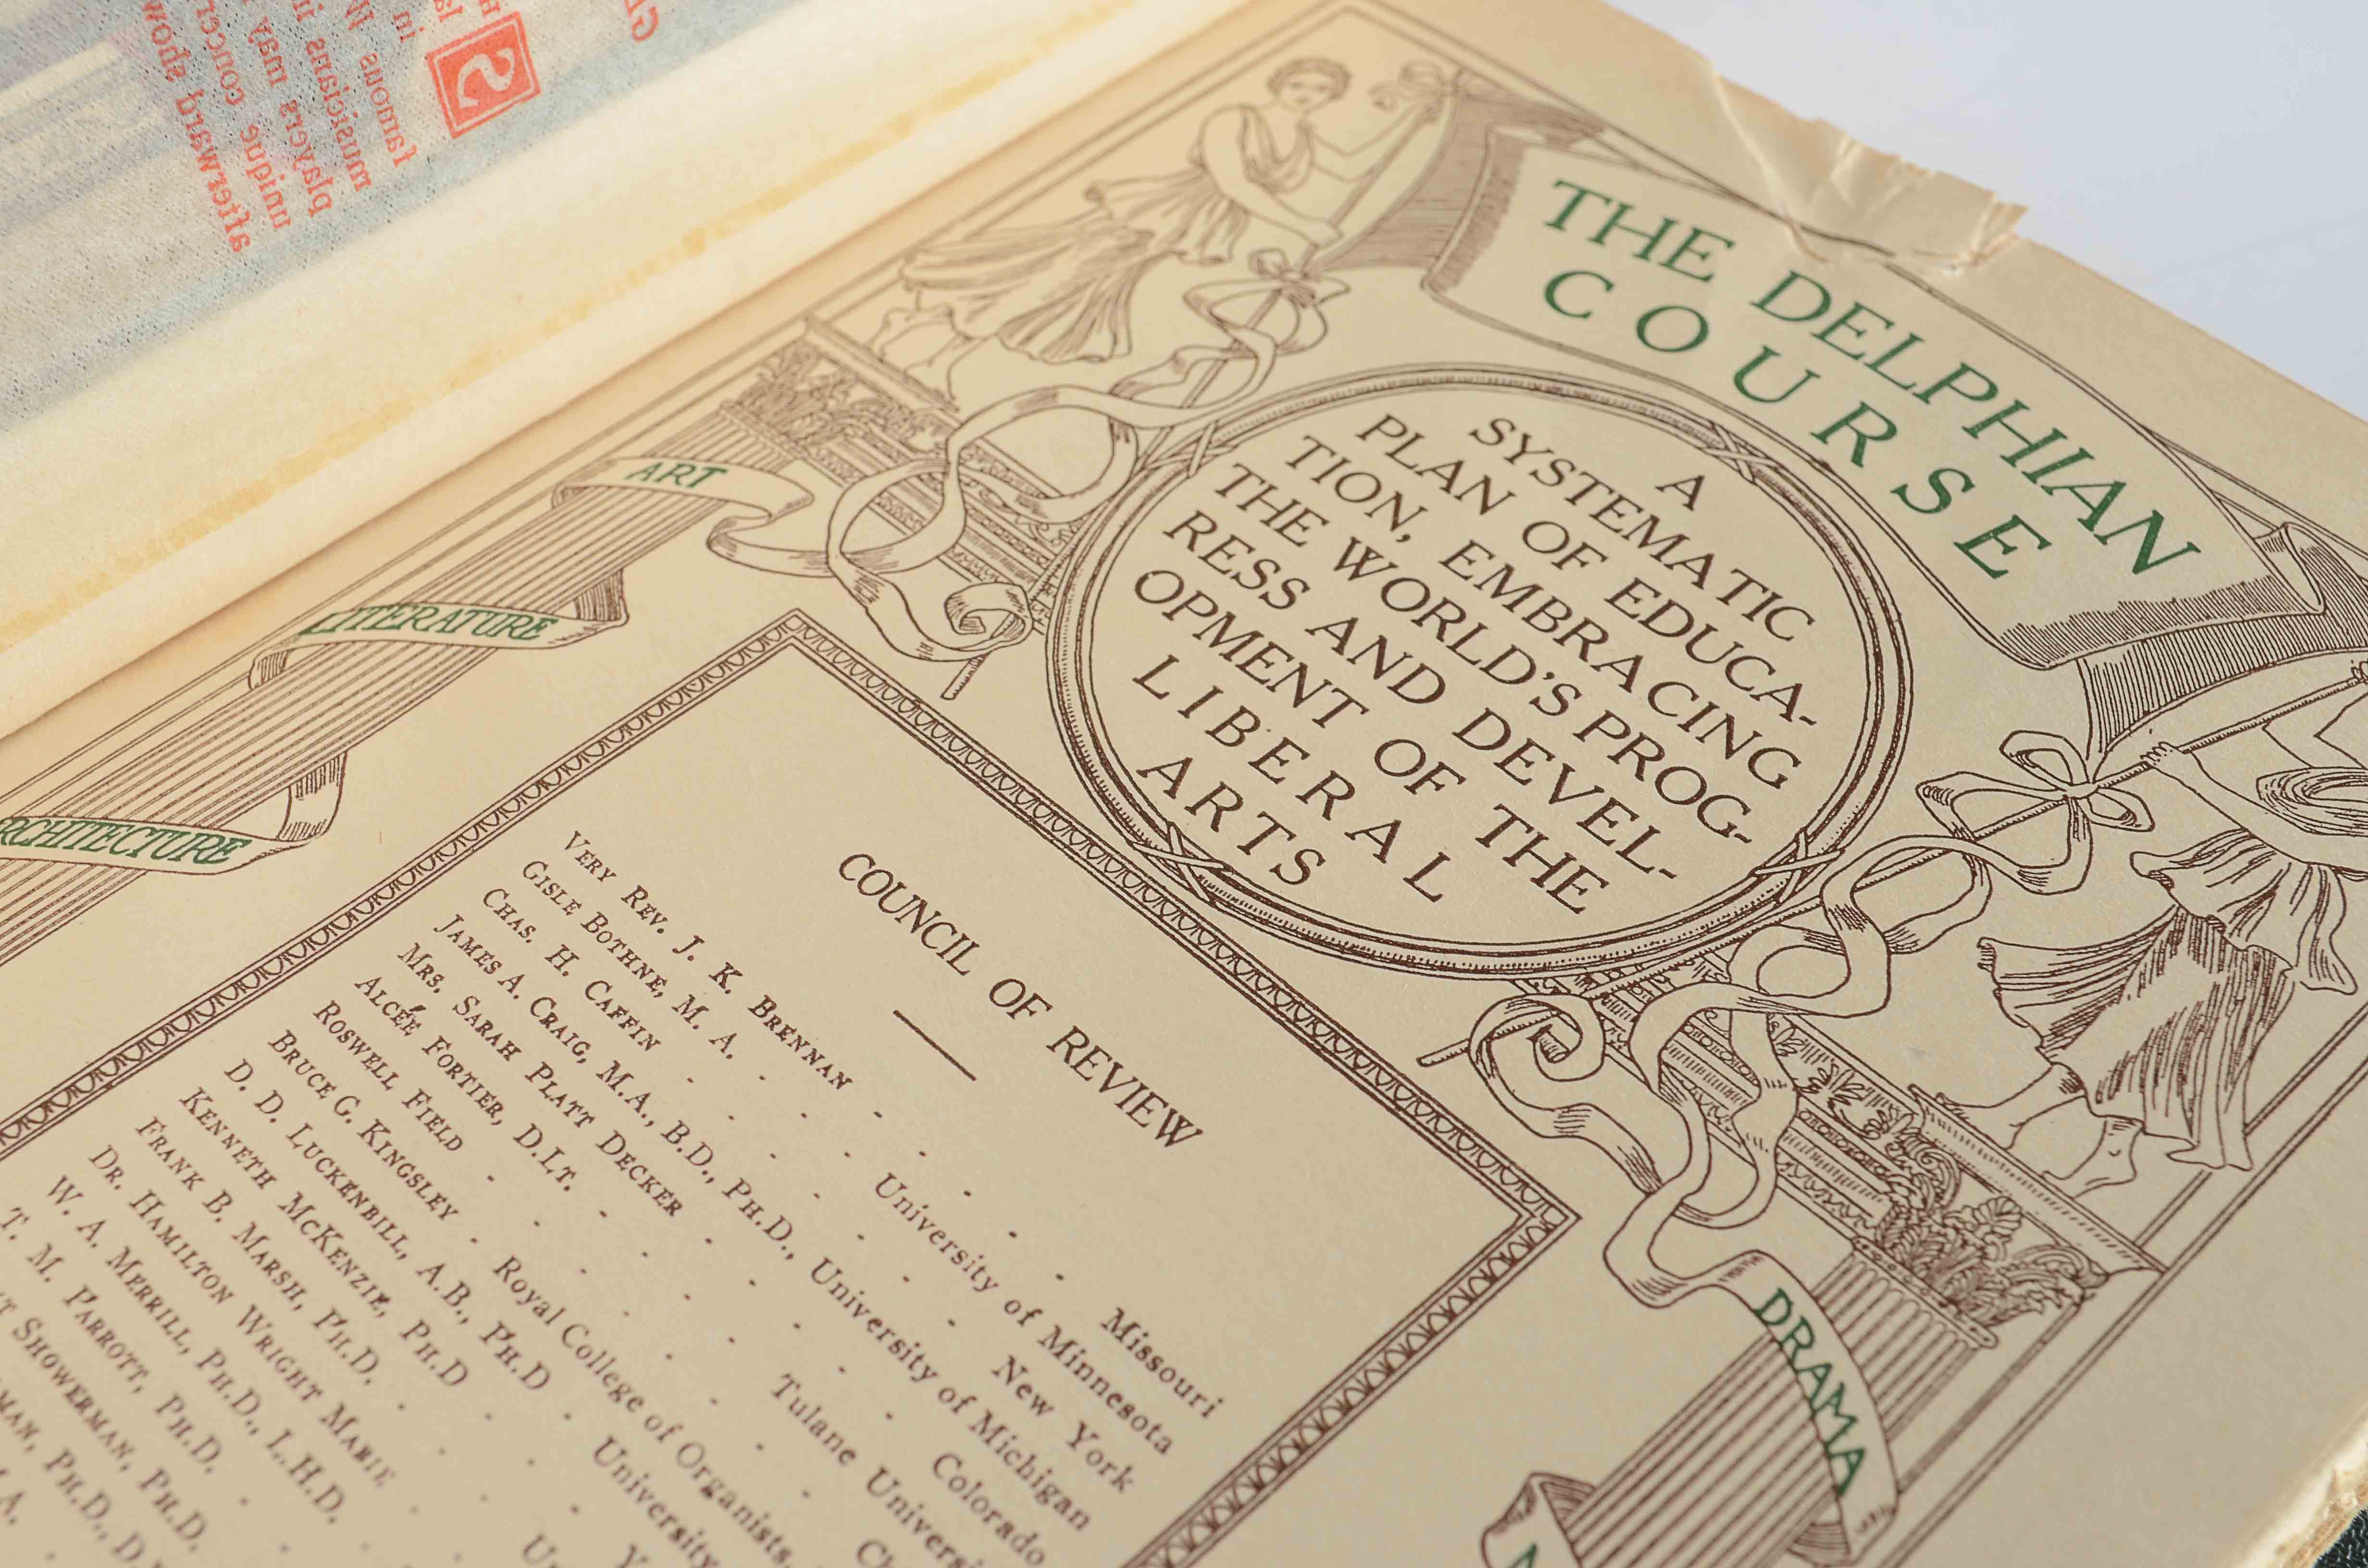 THE DELPHIAN
COURSE
A
SYSTEMATIC
PLAN OF EDUCA-
TION, EMBRACING
THE WORLD'S PROG-
RESS AND DEVEL-
OPMENT OF THE
LIBERAL
ARTS
ART
LITERATURE
RCHITECTURE
DRAMA
COUNCIL OF REVIEW
VERY REV. J. K. BRENNAN - - - - - Missouri
GISLE BOTHNE, M. A. - - - University of Minnesota
CHAS. H. CAFFIN - - - - - - New York
JAMES A. CRAIG, M.A., B.D., PH.D., University of Michigan
MRS. SARAH PLATT DECKER - - - - Colorado
ALCÉE FORTIER, D.LT. - - - - Tulane
ROSWELL FIELD - - - - - -
BRUCE G. KINGSLEY - Royal College of Organists,
D. D. LUCKENBILL, A.B., PH.D - University
KENNETH MCKENZIE, PH.D
FRANK B. MARSH, PH.D.
DR. HAMILTON WRIGHT MABIE
W. A. MERRILL, PH.D., L.H.D.
T. M. PARROTT, PH.D.
SHOWERMAN, PH.D.
PH.D.,
S
famous
in
musicians
players may
unique concer
afterward show